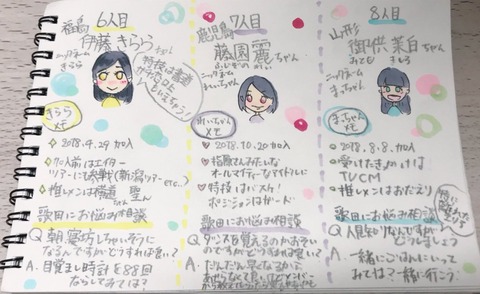 6人目
福島
伊藤きららちゃん
ニックネーム
きらら
特技は書道
きららメモ
2018.4.29 加入
加入前はエイター
ツアーにも参戦(新潟ツアーetc..)
聖ちゃん
歌田にお悩み相談
Q 朝寝坊しちゃいそうに
なるんですがどうすれば良い?
A. 目覚まし時計を88回
ならしてみては?
7人目
鹿児島
藤園麗ちゃん
ふじぞのれい
ニックネーム
れいちゃん
れいちゃんメモ
2018.10.20 加入
指原さんみたいな
オールマイティーなアイドルに
特技はバスケ!
ポジションはガード
歌田にお悩み相談
Q ダンスを覚えるのがおそい
のですがどうすれば良い?
A. だんだん早くなるから
8人目
山形
御供茉白ちゃん
みとも ましろ
ニックネーム
まっちゃん
まっちゃんメモ
2018.8.8. 加入
受けたきっかけは
TVCM
推しメンはおだえり
歌田にお悩み相談
Q 人見知りなんですが
どうしましょう
A. 一緒にごはんにいって
みては?一緒に行こう!